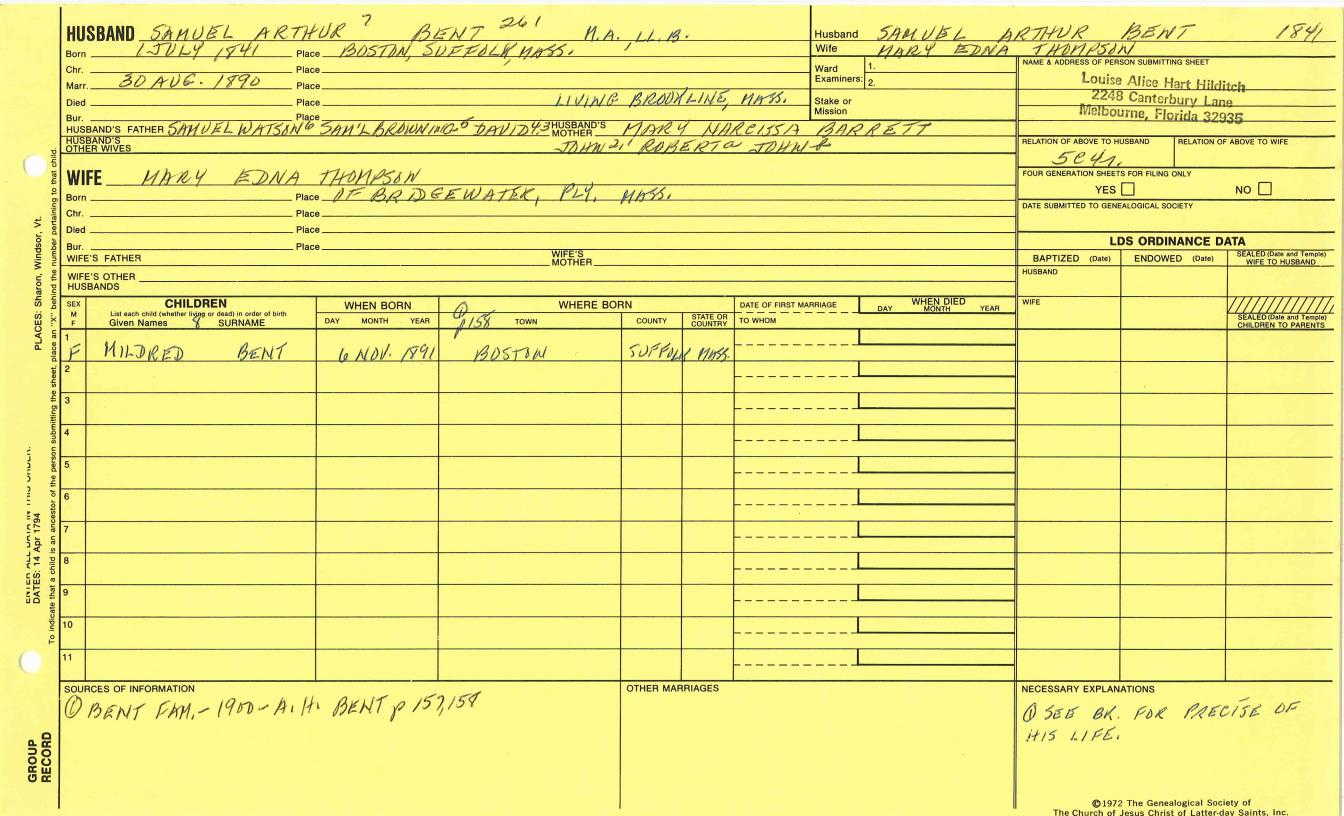 HUSBAND SAMUEL ARTHUR 7 BENT 261 M.A., LL.B.
Born 1 JULY 1841 Place BOSTON, SUFFOLK, MASS.
Chr. Place
Marr. 30 AUG. 1890 Place
Died Place LIVING BROOKLINE, MASS.
Bur. Place
HUSBAND'S FATHER SAMUEL WATSON6 SAM'L BROWNING5 DAVID4,3 HUSBAND'S MOTHER MARY NARCISSA BARRETT
HUSBAND'S OTHER WIVES JOHN2,1 ROBERTa JOHN
Husband SAMUEL ARTHUR BENT 1841
Wife MARY EDNA THOMPSON
Ward Examiners: 1.
2.
Stake or Mission
NAME & ADDRESS OF PERSON SUBMITTING SHEET
Louise Alice Hart Hilditch
2248 Canterbury Lane
Melbourne, Florida 32935
RELATION OF ABOVE TO HUSBAND RELATION OF ABOVE TO WIFE
5C4r.
FOUR GENERATION SHEETS FOR FILING ONLY
YES NO
DATE SUBMITTED TO GENEALOGICAL SOCIETY
WIFE MARY EDNA THOMPSON
Born Place OF BRIDGEWATER, PLY. MASS.
Chr. Place
Died Place
Bur. Place
WIFE'S FATHER WIFE'S MOTHER
WIFE'S OTHER HUSBANDS
LDS ORDINANCE DATA
BAPTIZED (Date) ENDOWED (Date) SEALED (Date and Temple) WIFE TO HUSBAND
HUSBAND
WIFE
SEALED (Date and Temple) CHILDREN TO PARENTS
SEX M F
CHILDREN
List each child (whether living or dead) in order of birth
Given Names 8 SURNAME
WHEN BORN
DAY MONTH YEAR
WHERE BORN
① p158 TOWN COUNTY STATE OR COUNTRY
DATE OF FIRST MARRIAGE
TO WHOM
WHEN DIED
DAY MONTH YEAR
1
F MILDRED BENT 6 NOV. 1891 BOSTON SUFFOLK MASS.
2
3
4
5
6
7
8
9
10
11
SOURCES OF INFORMATION
① BENT FAM. - 1900 - A.H. BENT p 157,158
OTHER MARRIAGES
NECESSARY EXPLANATIONS
① SEE BK. FOR PRECISE OF
HIS LIFE.
©1972 The Genealogical Society of
The Church of Jesus Christ of Latter-day Saints, Inc.
GROUP RECORD
ENTER ALL DATA IN THIS ORDER:
DATES: 14 Apr 1794
PLACES: Sharon, Windsor, Vt.
To indicate that a child is an ancestor of the person submitting the sheet, place an "X" behind the number pertaining to that child.